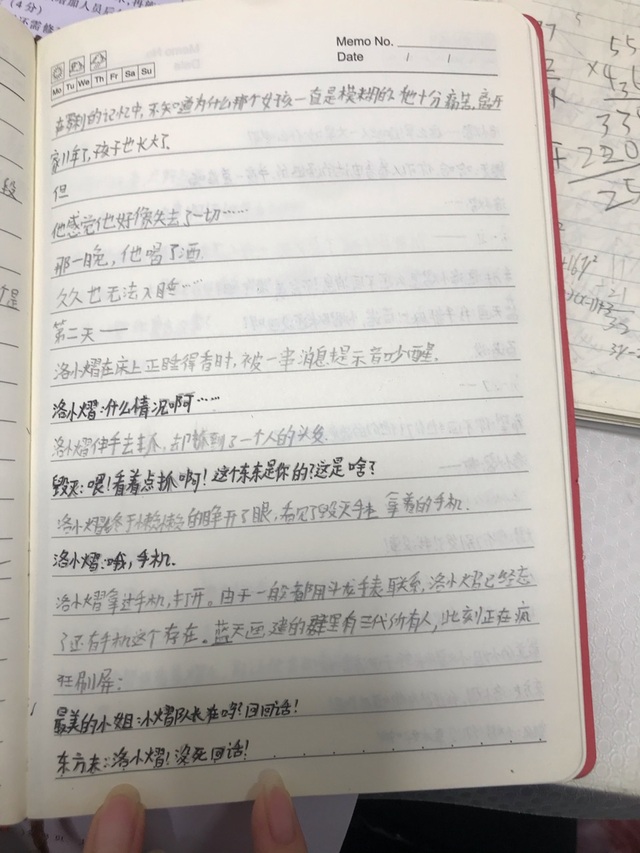 Memo No.
Date / /
Mo Tu We Th Fr Sa Su
的记忆中,不知道为什么那个女孩一直是模糊的,他十分痛苦,离开
家11年了,孩子也长大了,
但
他感觉他好像失去了一切……
那一晚,他喝了酒
久久也无法入睡……
第二天——
洛小熠在床上正睡得香时,被一串消息提示音吵醒,
洛小熠:什么情况啊……
洛小熠伸手去抓,却抓到了一个人的头发
毁灭:喂!看着点抓啊!这个东东是你的?这是啥?
洛小熠终于懒懒的睁开了眼,看见了毁灭手上拿着的手机.
洛小熠:哦,手机.
洛小熠拿过手机,打开。由于一般都用斗龙手表联系,洛小熠已经忘
了还有手机这个存在。蓝天画建的群里有三代所有人,此刻正在疯
狂刷屏:
最美的小姐:小熠队长在吗?回回话!
东方末:洛小熠!没死回话!